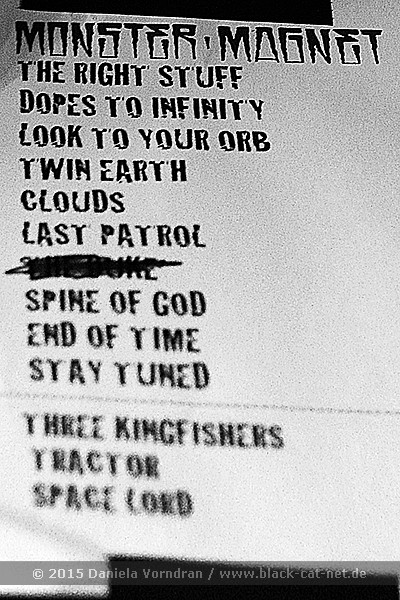 MONSTER MAGNET
THE RIGHT STUFF
DOPES TO INFINITY
LOOK TO YOUR ORB
TWIN EARTH
CLOUDS
LAST PATROL
SPINE OF GOD
END OF TIME
STAY TUNED
THREE KINGFISHERS
TRACTOR
SPACE LORD
© 2015 Daniela Vorndran / www.black-cat-net.de